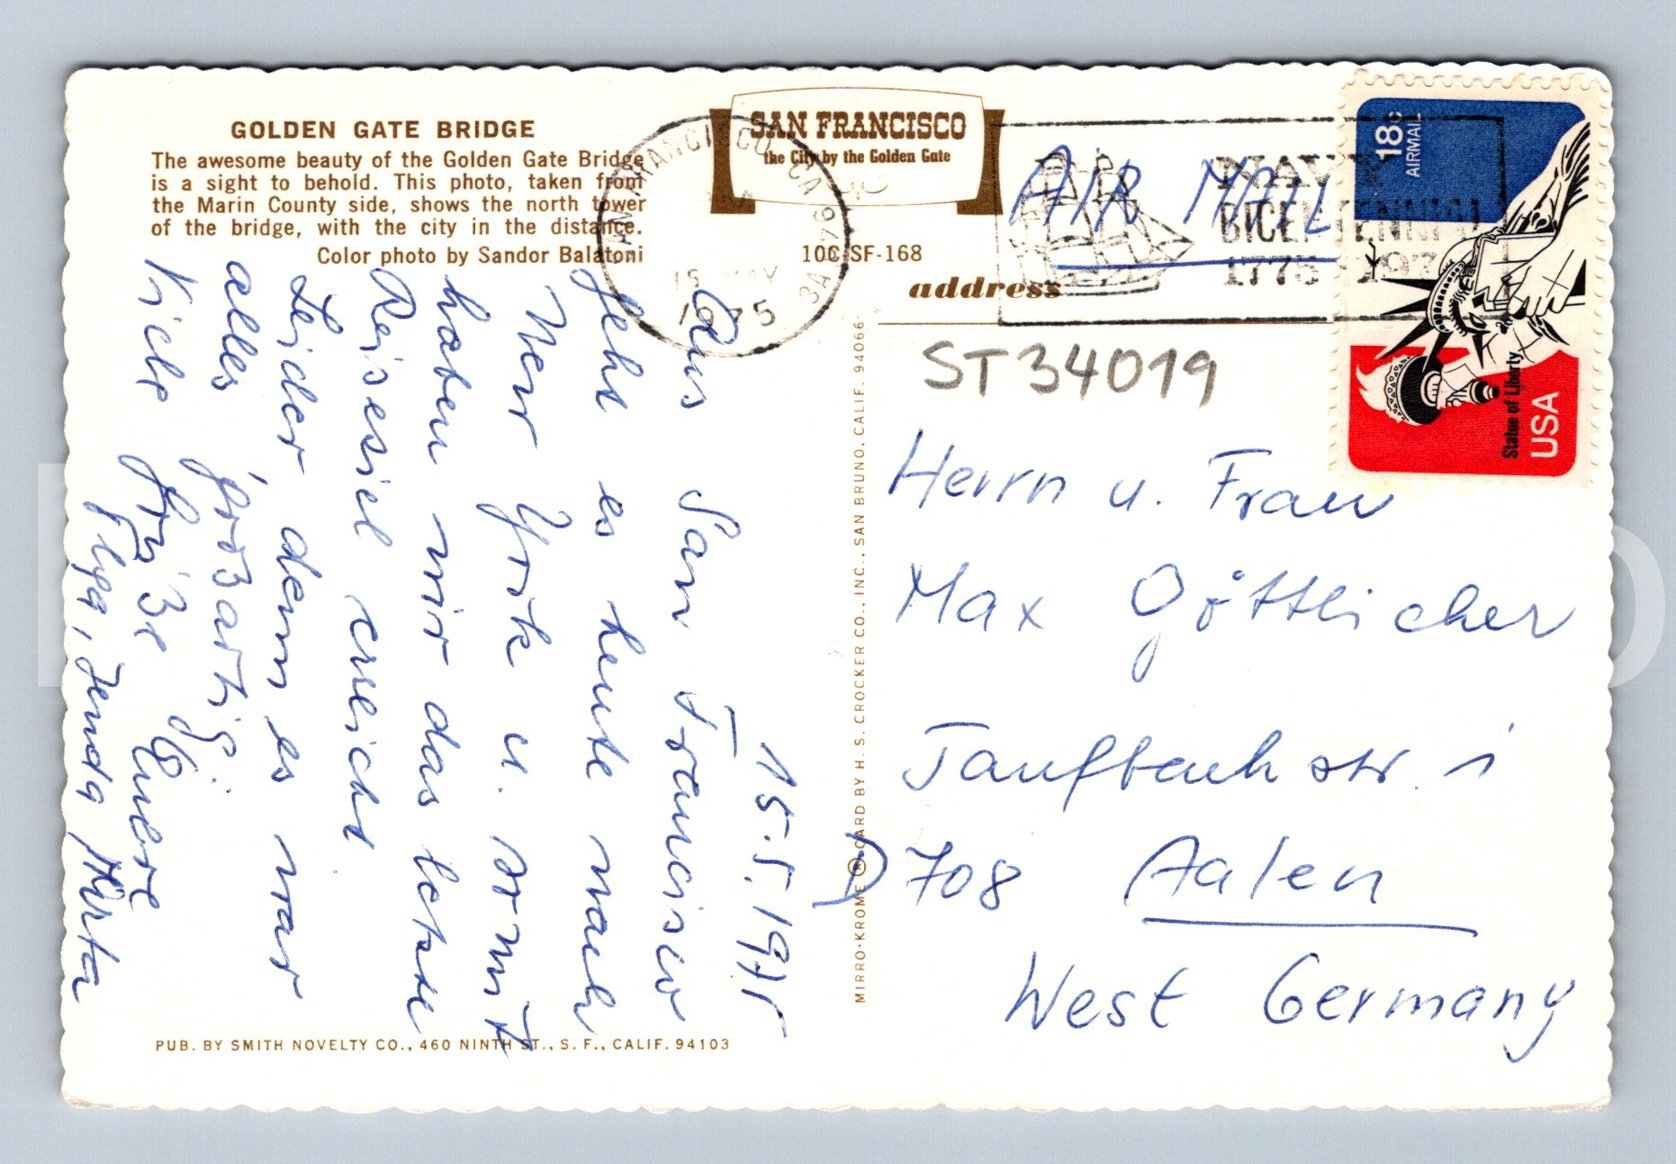 GOLDEN GATE BRIDGE
The awesome beauty of the Golden Gate Bridge
is a sight to behold. This photo, taken from
the Marin County side, shows the north tower
of the bridge, with the city in the distance.
Color photo by Sandor Balatoni
SAN FRANCISCO
the City by the Golden Gate
10C-SF-168
address
SAN FRANCISCO, CA
15 MAY
1975
NAVY
BICENTENNIAL
1775 1975
AIR MAIL
18c
AIRMAIL
Statue of Liberty
USA
ST34019
15.5.1975
Aus San Francisco
geht es heute nach
New York u. somit
haben wir das letzte
Reiseziel erreicht.
Leider, denn es war
alles großartig
Viele Grüße Euere
Herrn u. Frau
Max Göttlicher
Taufbachstr. 1
D 708 Aalen
West Germany
MIRRO-KROME ® CARD BY H. S. CROCKER CO., INC., SAN BRUNO, CALIF. 94066
PUB. BY SMITH NOVELTY CO., 460 NINTH ST., S. F., CALIF. 94103